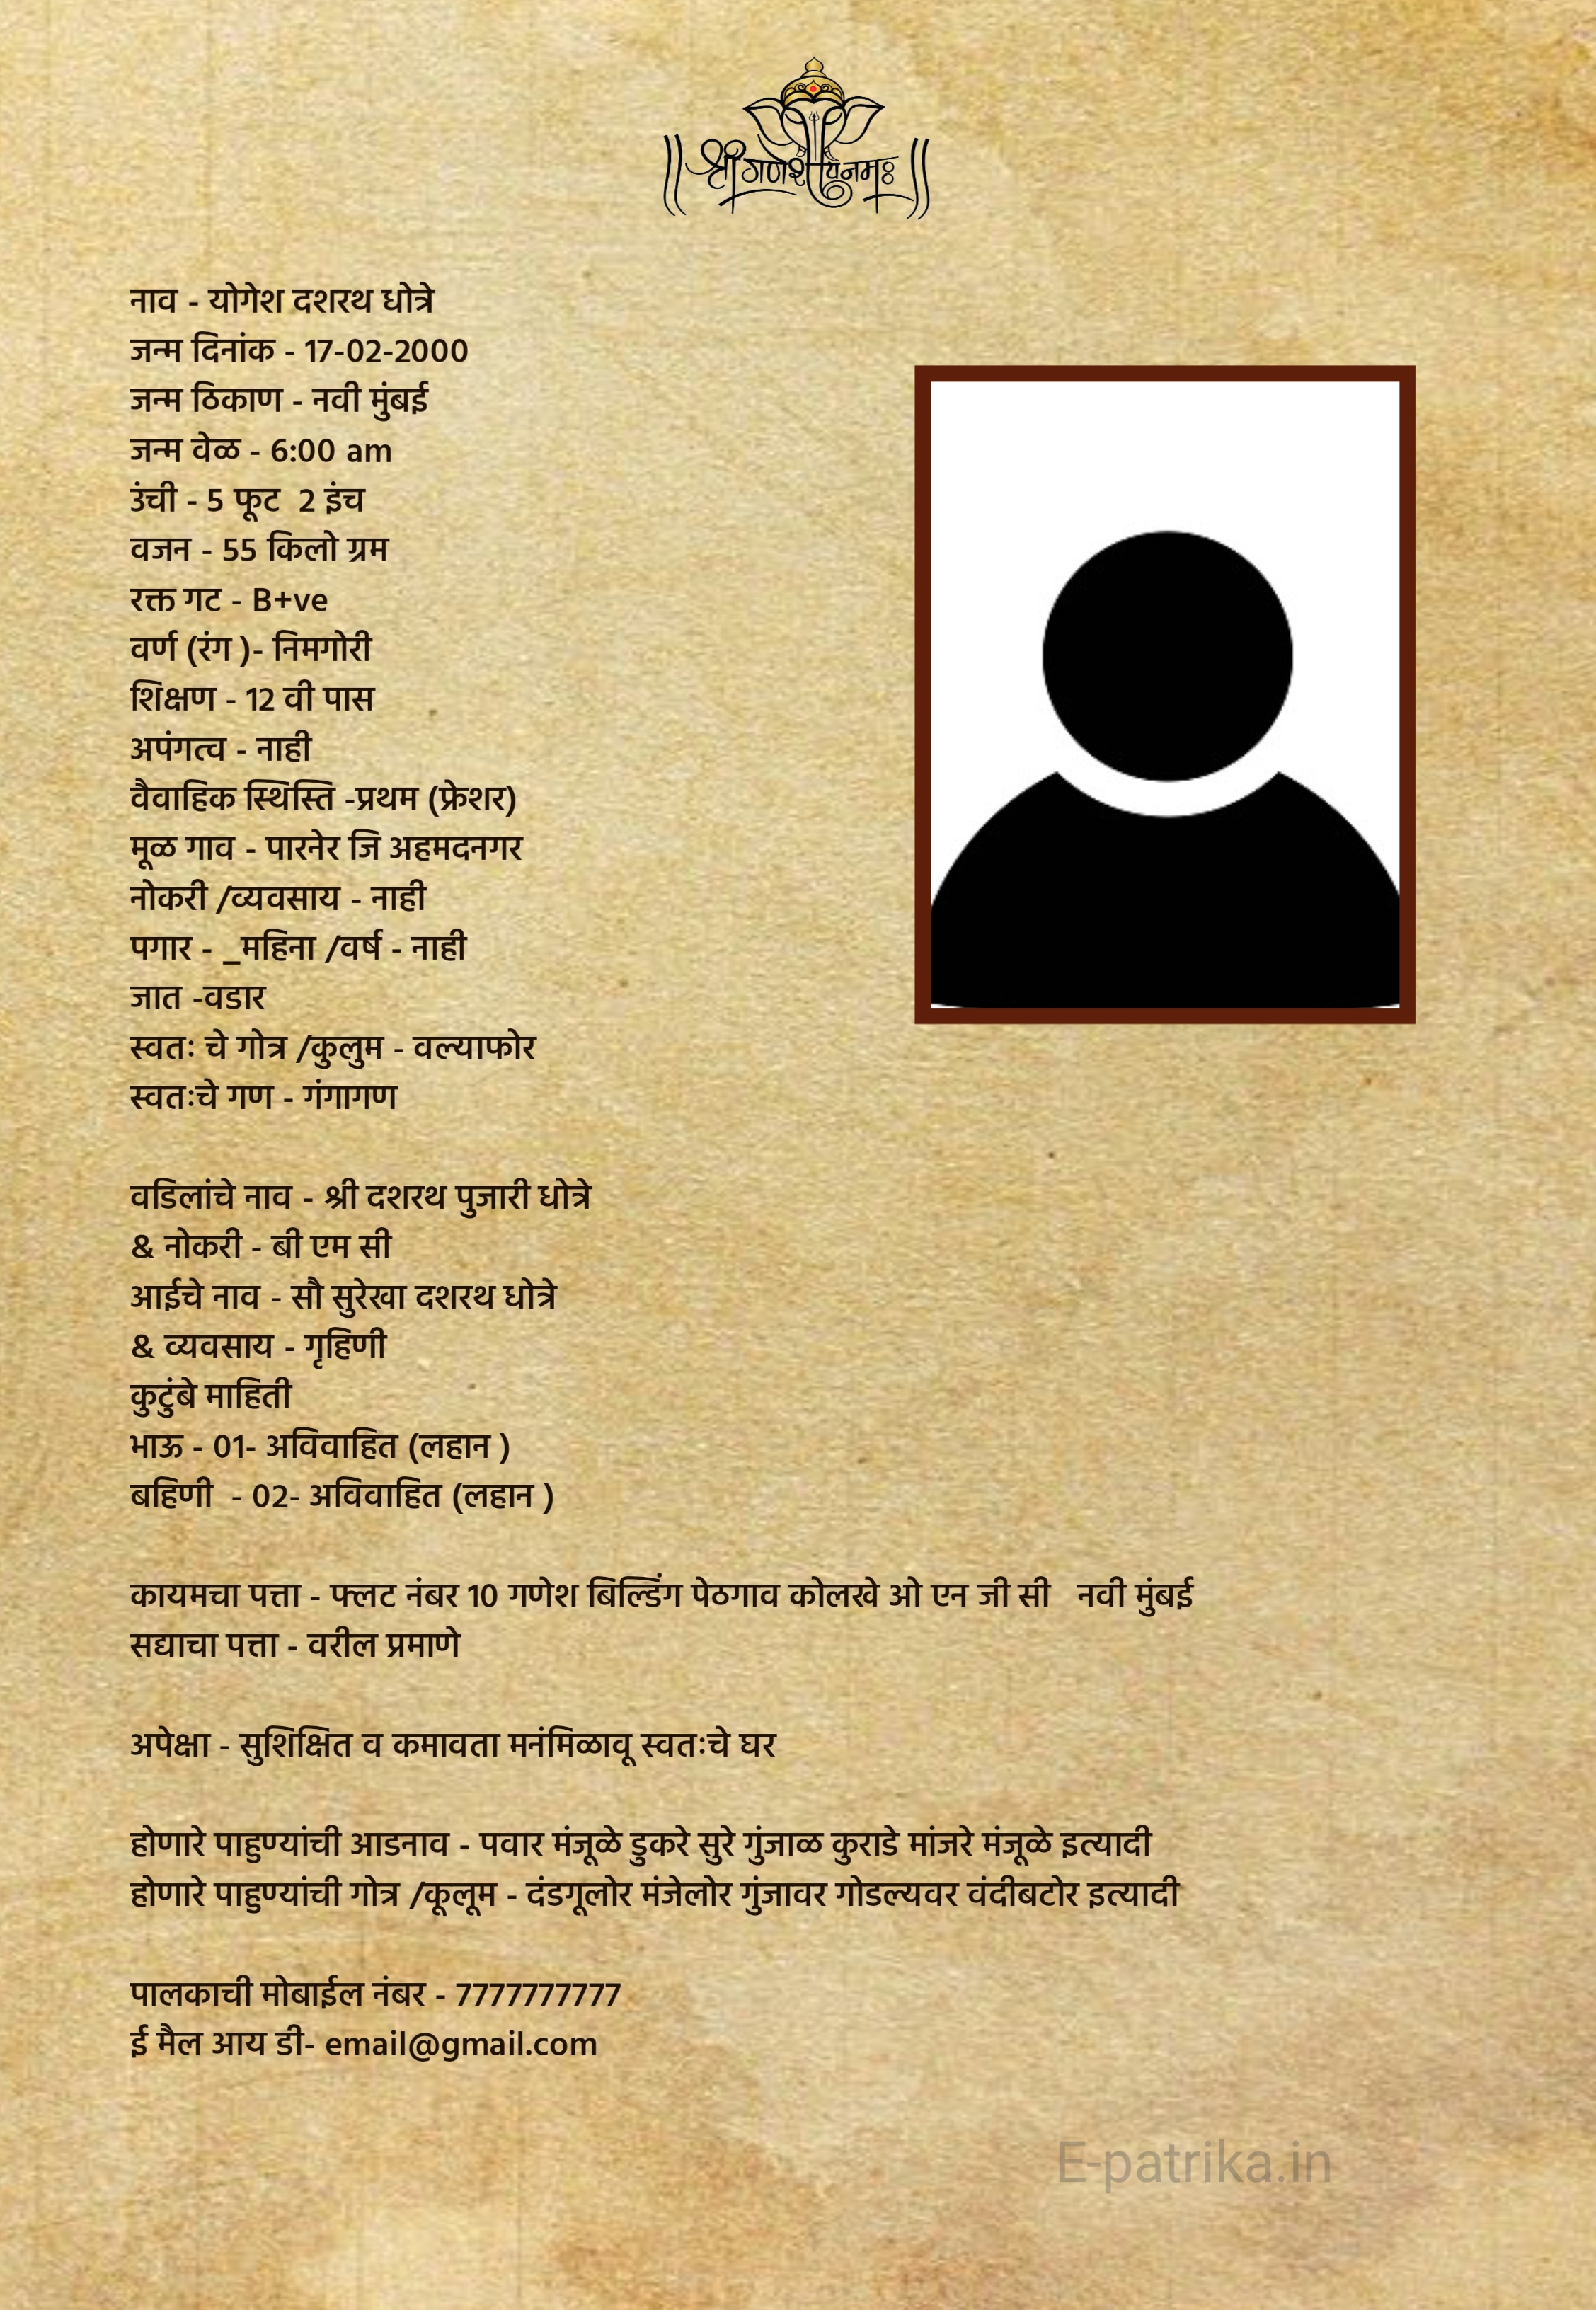 || श्री गणेशाय नमः ||
नाव - योगेश दशरथ धोत्रे
जन्म दिनांक - 17-02-2000
जन्म ठिकाण - नवी मुंबई
जन्म वेळ - 6:00 am
उंची - 5 फूट  2 इंच
वजन - 55 किलो ग्रम
रक्त गट - B+ve
वर्ण (रंग )- निमगोरी
शिक्षण - 12 वी पास
अपंगत्व - नाही
वैवाहिक स्थिस्ति -प्रथम (फ्रेशर)
मूळ गाव - पारनेर जि अहमदनगर
नोकरी /व्यवसाय - नाही
पगार - _महिना /वर्ष - नाही
जात -वडार
स्वतः चे गोत्र /कुलुम - वल्याफोर
स्वतःचे गण - गंगागण
वडिलांचे नाव - श्री दशरथ पुजारी धोत्रे
& नोकरी - बी एम सी
आईचे नाव - सौ सुरेखा दशरथ धोत्रे
& व्यवसाय - गृहिणी
कुटुंबे माहिती
भाऊ - 01- अविवाहित (लहान )
बहिणी  - 02- अविवाहित (लहान )
कायमचा पत्ता - फ्लट नंबर 10 गणेश बिल्डिंग पेठगाव कोलखे ओ एन जी सी   नवी मुंबई
सद्याचा पत्ता - वरील प्रमाणे
अपेक्षा - सुशिक्षित व कमावता मनंमिळावू स्वतःचे घर
होणारे पाहुण्यांची आडनाव - पवार मंजूळे डुकरे सुरे गुंजाळ कुराडे मांजरे मंजूळे इत्यादी
होणारे पाहुण्यांची गोत्र /कूलूम - दंडगूलोर मंजेलोर गुंजावर गोडल्यवर वंदीबटोर इत्यादी
पालकाची मोबाईल नंबर - 7777777777
ई मैल आय डी- email@gmail.com
E-patrika.in